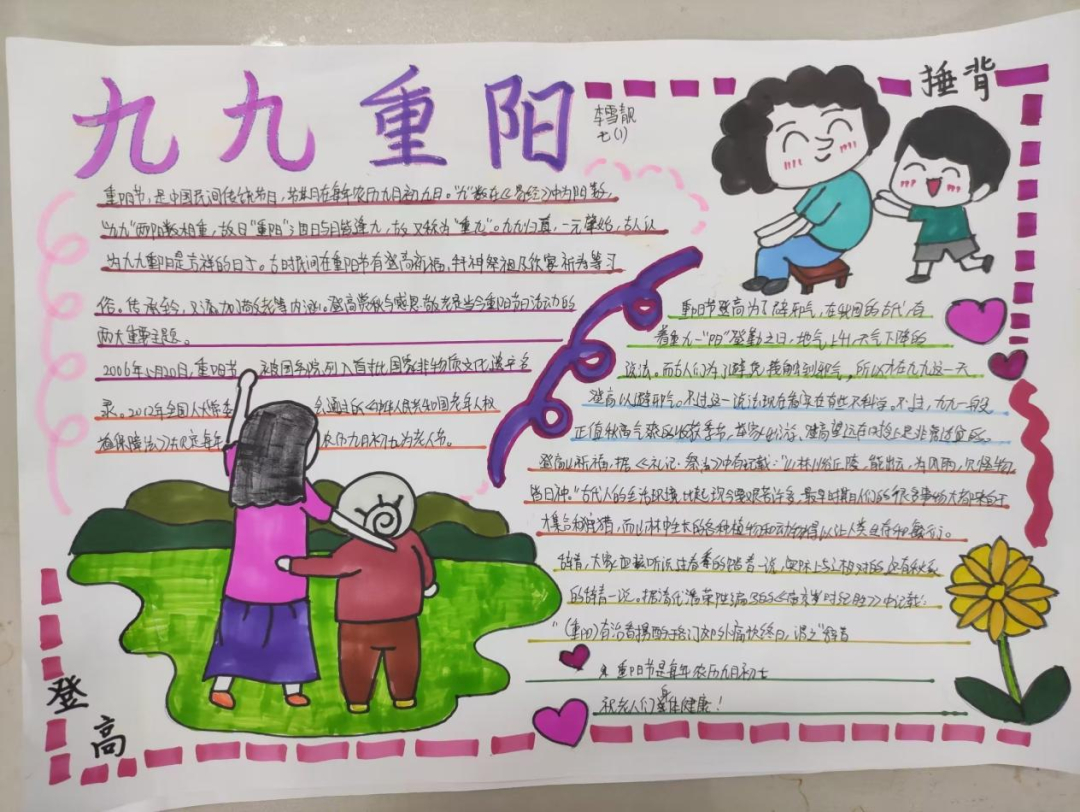 九九重阳
李雪靓
七(1)
捶背
重阳节，是中国民间传统节日，节期在每年农历九月初九日。"九"数在《易经》中为阳数，
"九九"两阳数相重，故曰"重阳"；因日与月皆逢九，故又称为"重九"。九九归真，一元肇始，古人认
为九九重阳是吉祥的日子。古时民间在重阳节有登高祈福、拜神祭祖及饮宴祈寿等习
俗。传承至今，又添加了敬老等内涵。登高赏秋与感恩敬老是当今重阳节日活动的
两大重要主题。
2006年5月20日，重阳节 被国务院列入首批国家非物质文化遗产名
录。2012年全国人大常委 会通过的《中华人民共和国老年人权
益保障法》法规定每年 农历九月初九为老年节。
重阳节登高为了辟邪气，在我国的古代有
着重九一"阳"登勤之日，地气上升，天气下降的
说法。而古人们为了避免接触到邪气，所以才在九九这一天
登高以避邪气。不过这一说法现在看实在有些不科学。不过，九九一段
正值秋高气爽
登高以祈福，据《礼记·祭法》中有记载："山林川谷丘陵，能出云，为风雨，见怪物，
皆曰神。"古代人的生活环境比起现今要艰苦许多，最早时期人们的很多事物大都来自于
采集和狩猎，而山林中生长的各种植物和动物得以让人类生存和繁衍。
辞青，大家应该听说过春季的踏青一说，实际上与之相对的还有秋季
的辞青一说。据清代潘荣陛编
"(重阳)有治肴携酌于都门郊外痛饮终日，谓之"辞青
重阳节是每年农历九月初七
祝老人们身体健康！
登高